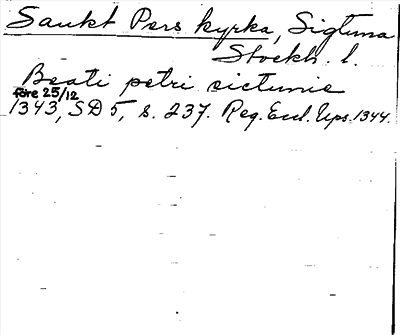 Sankt Pers kyrka, Sigtuna
Stockh. l.
Beati petri sictunie
före 25/12
1343, SD 5, s. 237. Reg. Eccl. Ups. 1344.